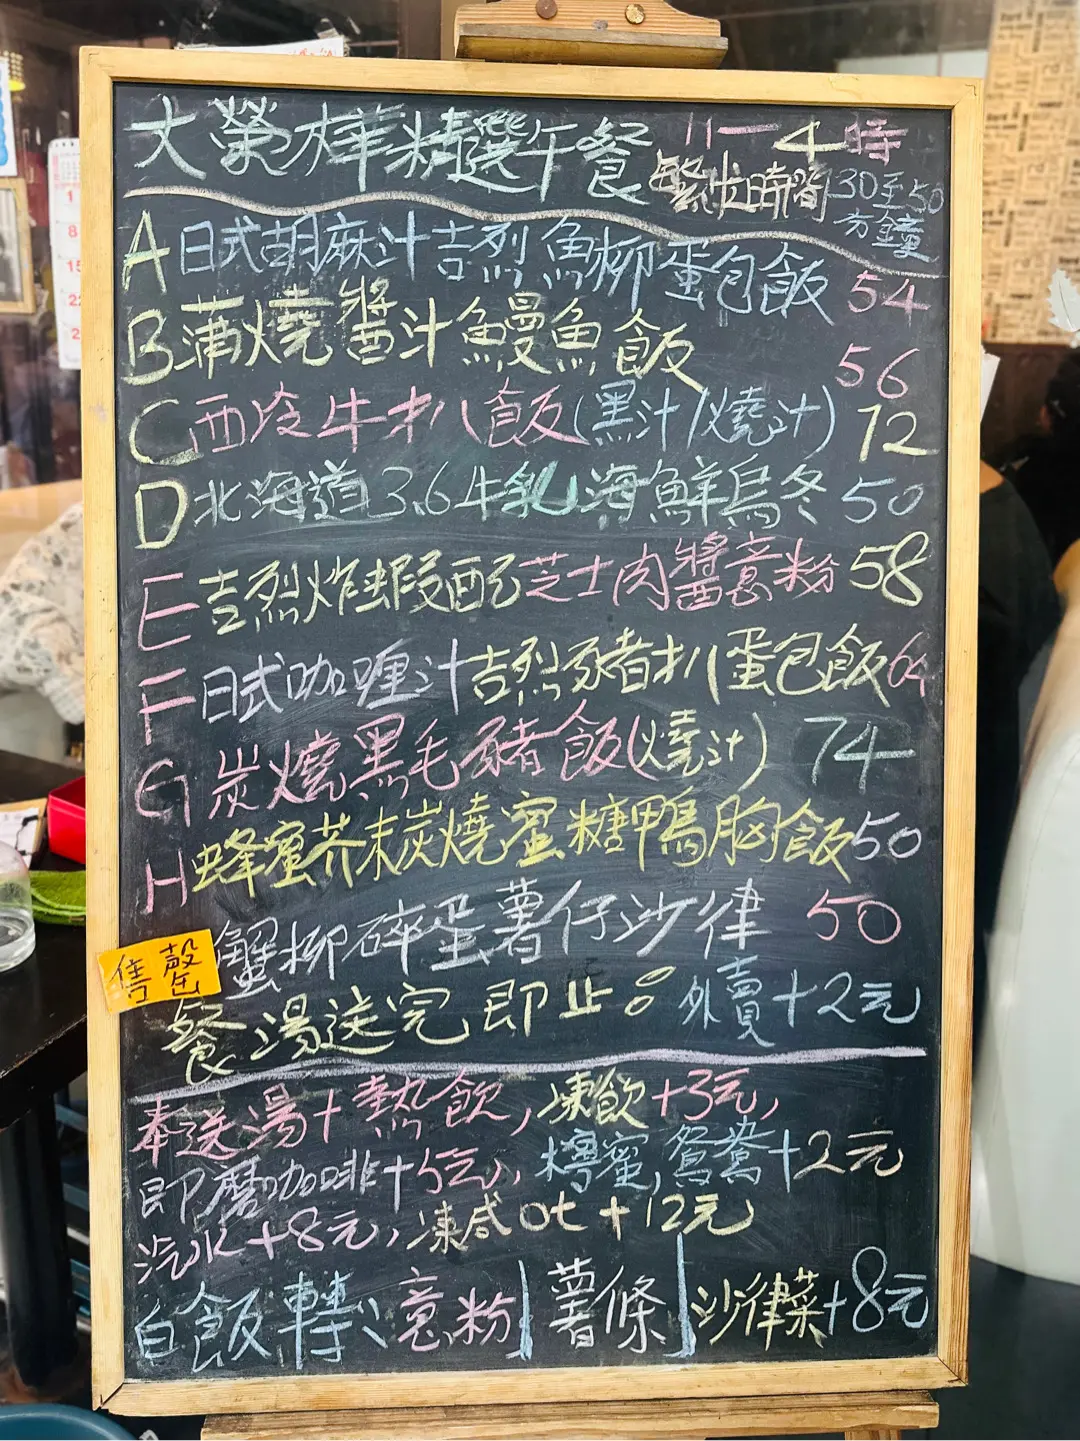 大榮華精選午餐 11—4時
繁忙時間30至50
分鐘
A日式胡麻汁吉烈魚柳蛋包飯 54
B蒲燒醬汁鰻魚飯 56
C西冷牛扒飯(黑汁/燒汁) 72
D北海道3.6牛乳海鮮烏冬 50
E吉烈炸蝦配芝士肉醬意粉 58
F日式咖喱汁吉烈豬扒蛋包飯 64
G炭燒黑毛豬飯(燒汁) 74
H蜂蜜芥末炭燒蜜糖鴨胸飯 50
售罄 蟹柳碎蛋薯仔沙律 50
餐湯送完即止。外賣+2元
奉送湯+熱飲,凍飲+3元,
即磨咖啡+5元,檸蜜,鴛鴦+2元
汽水+8元,凍咸0t+12元
白飯轉、意粉|薯條|沙律菜+8元